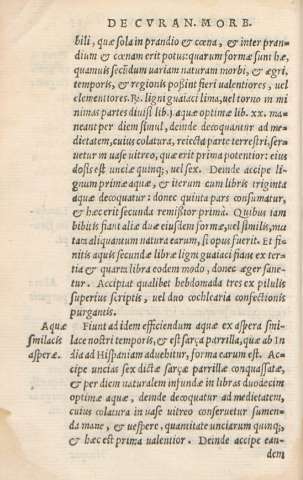 DE CVRAN. MORB.
bili, quæ sola in prandio & cœna, & inter pran-
dium & cœnam erit potus: quarum formæ sunt hæ,
quamuis secūdum uariam naturam morbi, & ægri,
temporis, & regionis poßint fieri ualentiores, uel
elementiores. ligni guaiaci lima, uel torno in mi
nimas partes diuisi lib. j. aquæ optimæ lib. xx. ma-
neant per diem simul, deinde decoquantur ad me-
dietatem, cuius colatura, reiecta parte terrestri, ser-
uetur in uase uitreo, quæ erit prima potentior: eius
dosis est unciæ quinq;, uel sex. Deinde accipe li-
gnum primæ aquæ, & iterum cum libris triginta
aquæ decoquatur: donec quinta pars consumatur,
& hæc erit secunda remißior primi. Quibus tam
bibitis fiant aliæ duæ eiusdem formæ, uel similis, mu
tam aliquanum natura earum, si opus fuerit. Et fi-
nitis aquis secundæ libræ ligni guaiaci fiant ex ter-
tia & quarta libra eodem modo, donec æger sane-
tur. Accipiat qualibet hebdomada tres ex pilulis
superius scriptis, uel duo cochlearia confectionis
purgantis.
Aquæ
smilacis
asperæ.
Fiunt ad idem efficiendum aquæ ex aspera smi-
lace nostri temporis, & est sarça parrilla, quæ ab In
dia ad Hispaniam aduehitur, forma earum est. Ac-
cipe uncias sex dictæ sarçæ parrillæ conquassatæ,
& per diem naturalem infundæ in libras duodecim
optimæ aquæ, deinde decoquatur ad medietatem,
cuius colatura in uase uitreo conseruetur sumen-
da mane, & uespere, quantitate unciarum quinq;,
& hæc est prima ualentior. Deinde accipe ean-
dem